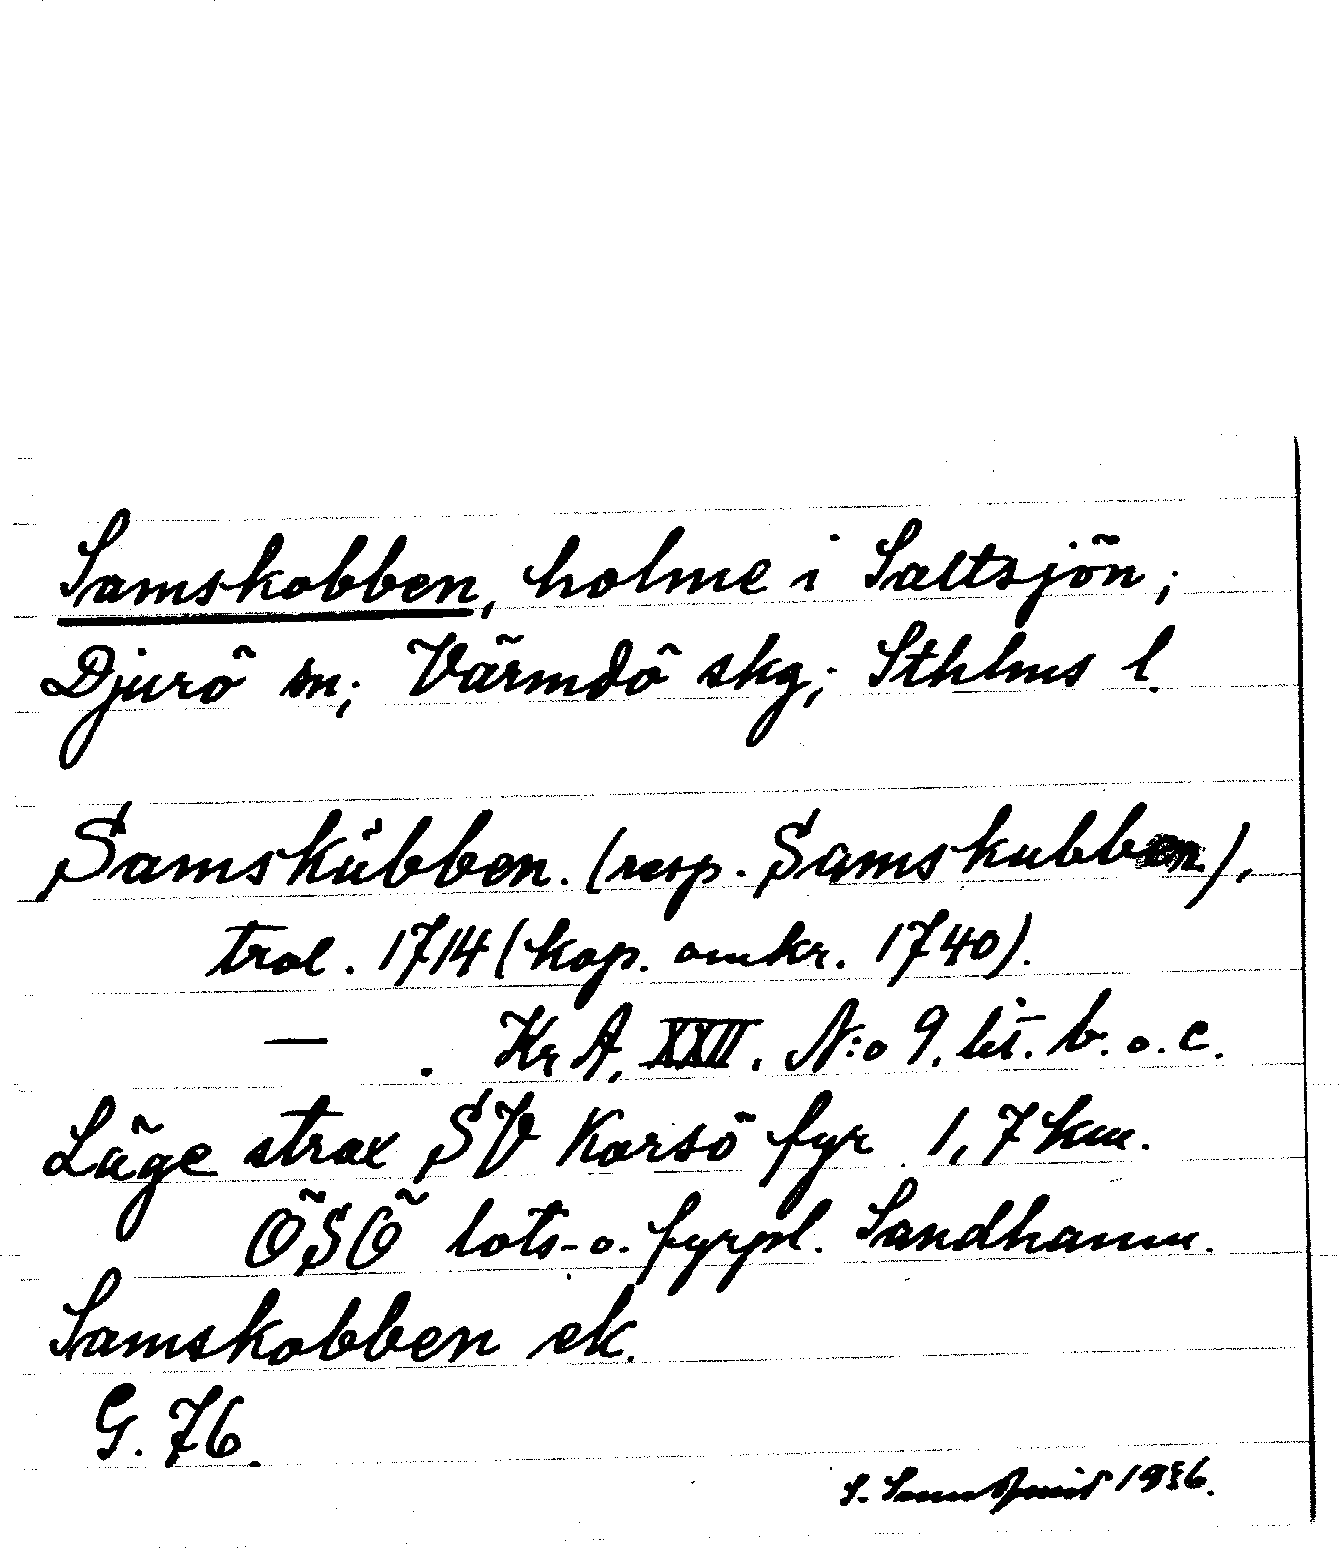 Samskobben, holme i Saltsjön;
Djurö sn; Värmdö skg; Sthlms l.
Samskübben. (resp. Samskubben),
trol. 1714 (kop. omkr. 1740).
— . Kr A, XXII. N:o 9. lit. b. o. c.
Läge strax SV Korsö fyr 1,7 km.
ÖSÖ lots- o. fyrpl. Sandhamn.
Samskobben ek.
G. 76.
S. 1936.